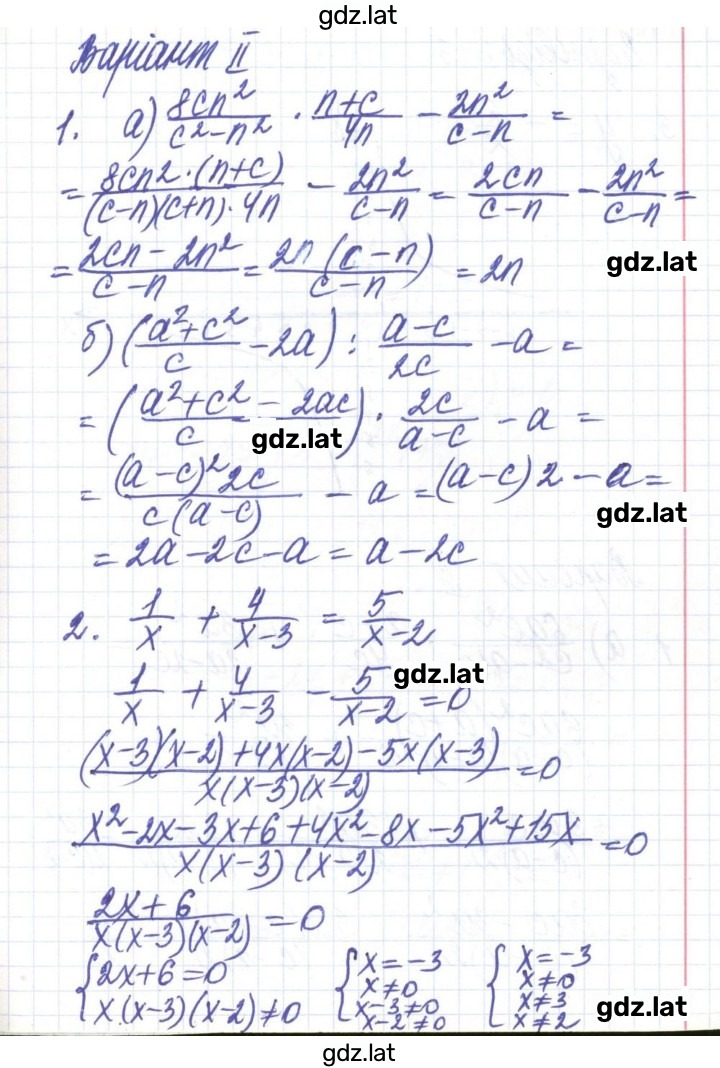 gdz.lat
Варіант II
1. а) 8cn²/(c²-n²) · (n+c)/4n - 2n²/(c-n) =
= 8cn²·(n+c)/((c-n)(c+n)·4n) - 2n²/(c-n) = 2cn/(c-n) - 2n²/(c-n) =
= (2cn-2n²)/(c-n) = 2n(c-n)/(c-n) = 2n
gdz.lat
б) ((a²+c²)/c - 2a) : (a-c)/2c - a =
= ((a²+c²-2ac)/c) · 2c/(a-c) - a =
gdz.lat
= (a-c)²2c/(c(a-c)) - a = (a-c)2-a =
gdz.lat
= 2a-2c-a = a-2c
2. 1/x + 4/(x-3) = 5/(x-2)
gdz.lat
1/x + 4/(x-3) - 5/(x-2) = 0
((x-3)(x-2)+4x(x-2)-5x(x-3))/(x(x-3)(x-2)) = 0
(x²-2x-3x+6+4x²-8x-5x²+15x)/(x(x-3)(x-2)) = 0
(2x+6)/(x(x-3)(x-2)) = 0
{2x+6=0 {x=-3 {x=-3
x(x-3)(x-2)≠0 x≠0 x≠0
x-3≠0 x≠3
x-2≠0 x≠2
gdz.lat
gdz.lat